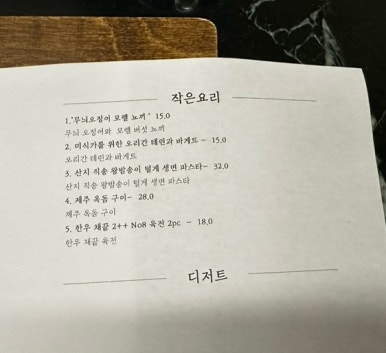 작은요리
1.'무늬오징어 모렐 뇨끼 ' 15.0
무늬 오징어와 모렐 버섯 뇨끼
2. 미식가를 위한 오리간 테린과 바게트- 15.0
오리간 테린과 바게트
3. 산지 직송 왕밤송이 털게 생면 파스타- 32.0
산지 직송 왕밤송이 털게 생면 파스타
4. 제주 옥돔 구이- 28.0
제주 옥돔 구이
5. 한우 채끝 2++ No8 육전 2pc - 18.0
한우 채끝 육전
디저트